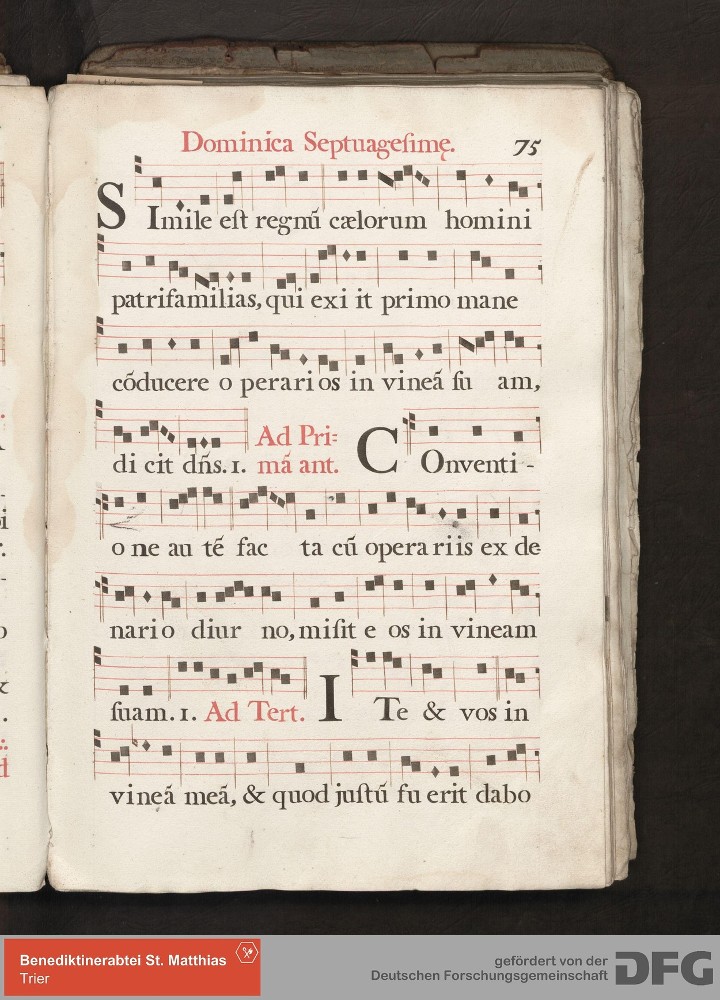 Dominica Septuageſimę. 75
SImile eſt regnũ cælorum homini
patrifamilias, qui exi it primo mane
cõducere o perari os in vineã ſu am,
di cit dñs. 1. Ad Pri=
mã ant. COnventi -
o ne au tẽ fac ta cũ opera riis ex de
nario diur no, miſit e os in vineam
ſuam. 1. Ad Tert. ITe & vos in
vineã meã, & quod juſtũ fu erit dabo
Benediktinerabtei St. Matthias
Trier
gefördert von der
Deutschen Forschungsgemeinschaft
DFG